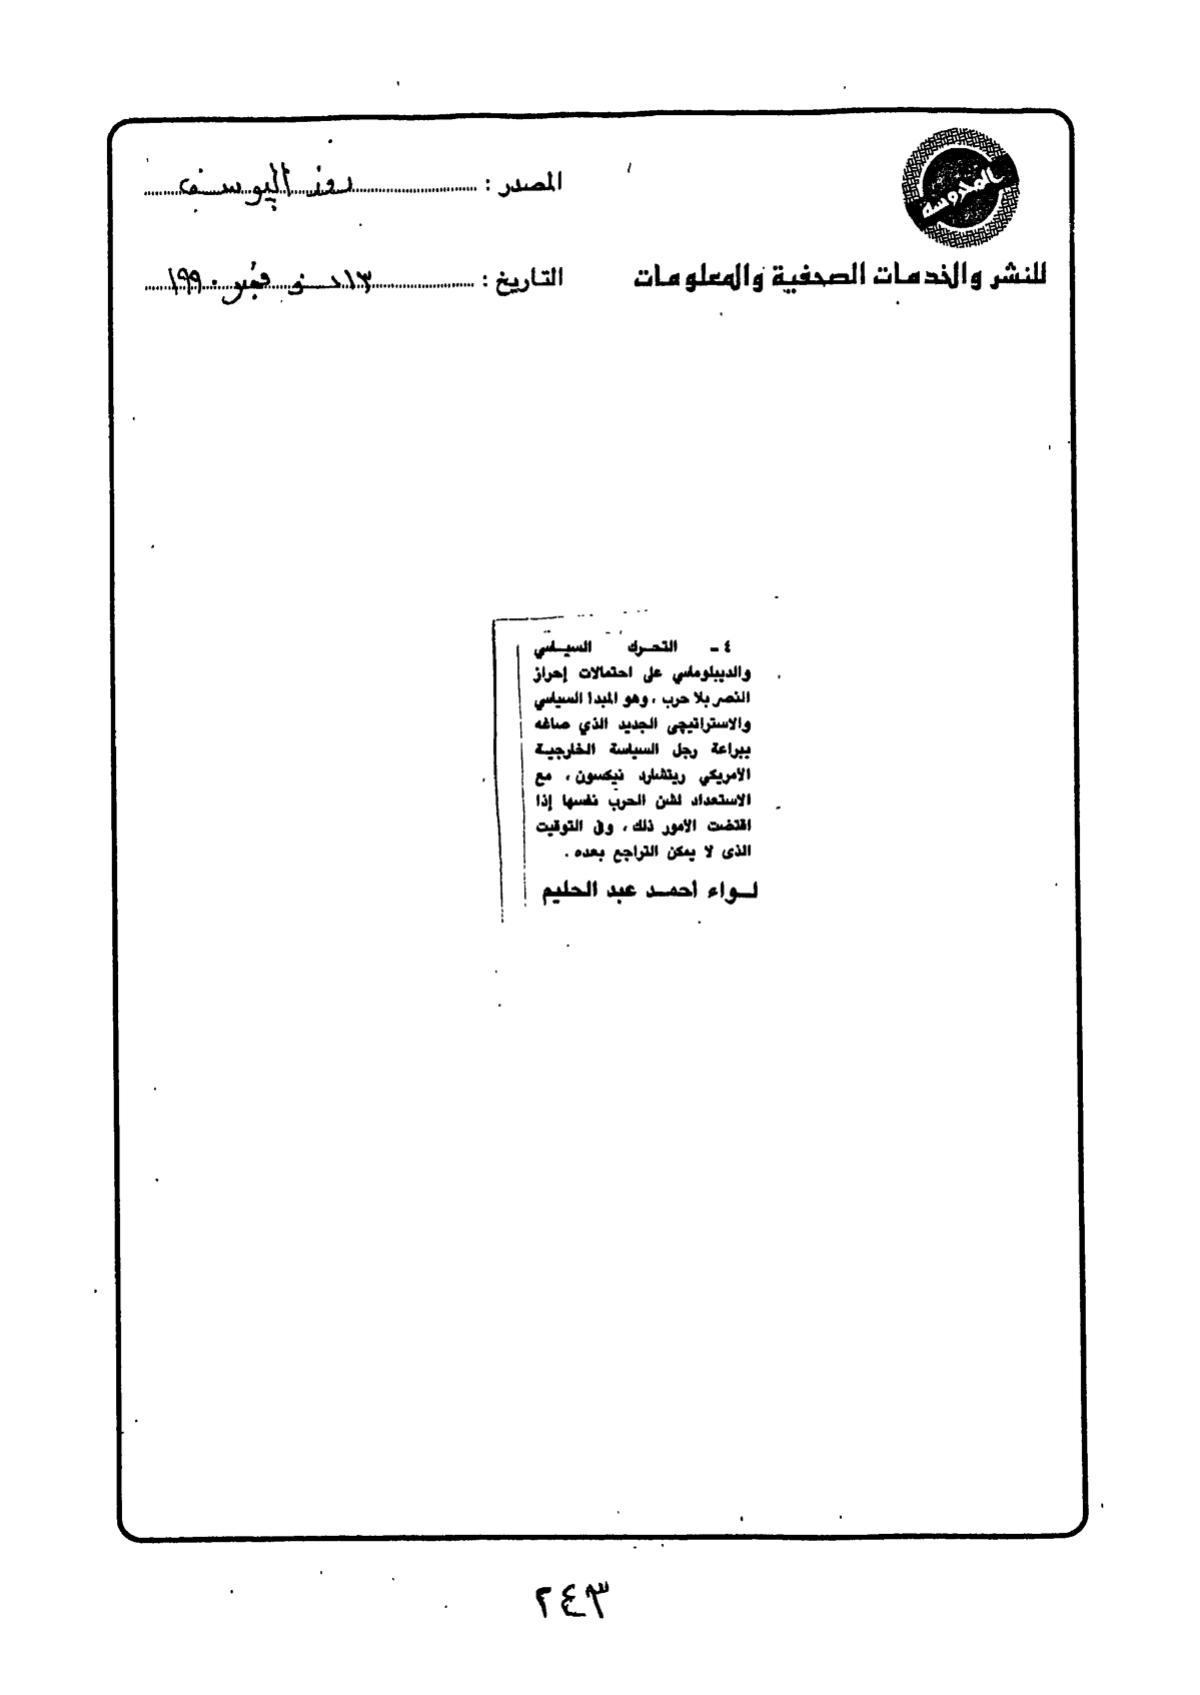 المحروسة
للنشر والخدمات الصحفية والمعلومات
المصدر : روز اليوسف
التاريخ : ١٣ نوفمبر ١٩٩٠
٤ - التحرك السياسي
والديبلوماسي على احتمالات إحراز
النصر بلا حرب ، وهو المبدا السياسي
والاستراتيجى الجديد الذي صاغه
ببراعة رجل السياسة الخارجية
الامريكي ريتشارد نيكسون ، مع
الاستعداد لشن الحرب نفسها إذا
اقتضت الأمور ذلك ، وفى التوقيت
الذى لا يمكن التراجع بعده .
لـواء أحمـد عبد الحليم
٢٤٣